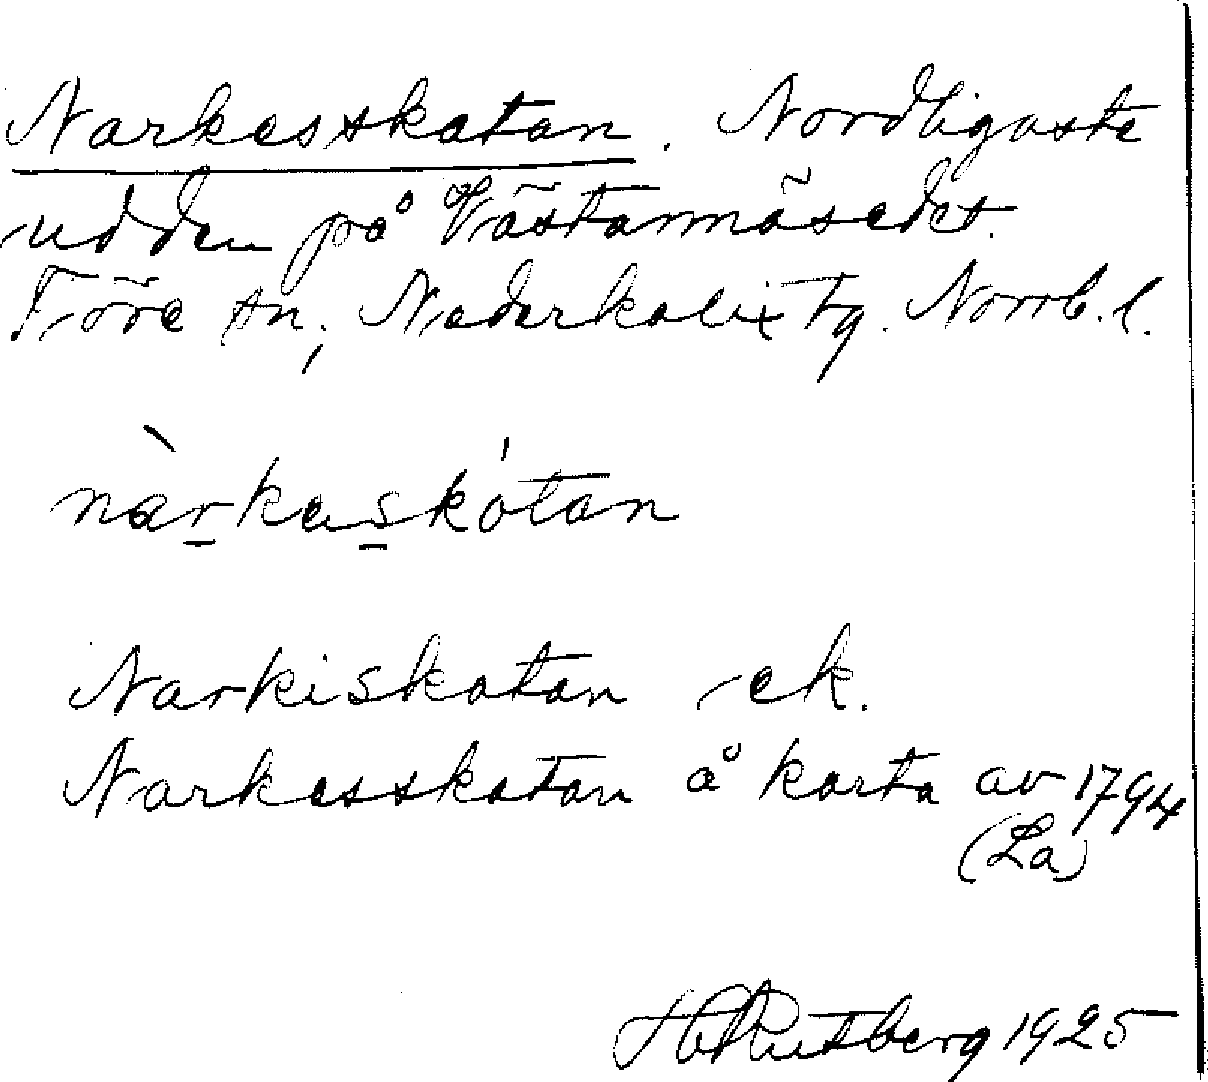 Narkesskatan. Nordligaste
udden på Västannäsedet.
Töre sn, Nederkalix tg. Norrb. l.
nàrkaskótan
Narkiskatan ek.
Narkesskatan å karta av 1794
(La)
H Rutberg 1925